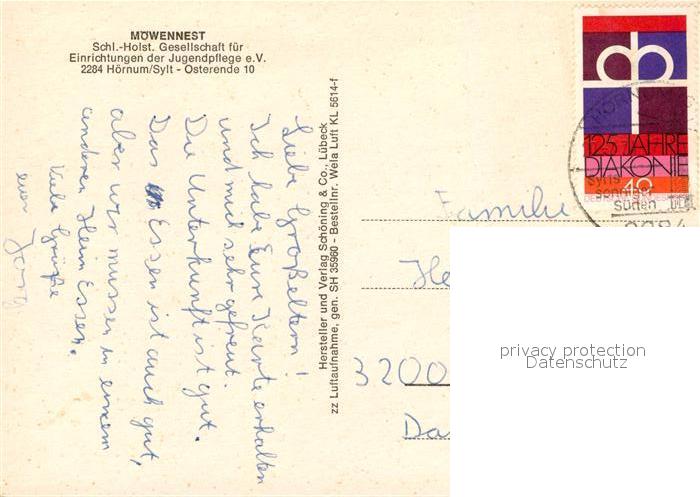 MÖWENNEST
Schl.-Holst. Gesellschaft für
Einrichtungen der Jugendpflege e.V.
2284 Hörnum/Sylt - Osterende 10
Liebe Großeltern!
Ich habe Eure Karte erhalten
und mich sehr gefreut.
Die Unterkunft ist gut.
Das Essen ist auch gut,
aber wir müssen in einem
anderen Heim Essen.
Viele Grüße
euer Jörg
Hersteller und Verlag Schöning & Co., Lübeck
zz Luftaufnahme, gen. SH 35960 - Bestellnr. Wela Luft KL 5614-f
125 JAHRE
DIAKONIE
40
Sylts
sonniger
Süden
2284
Familie
He
3200
Da
privacy protection
Datenschutz